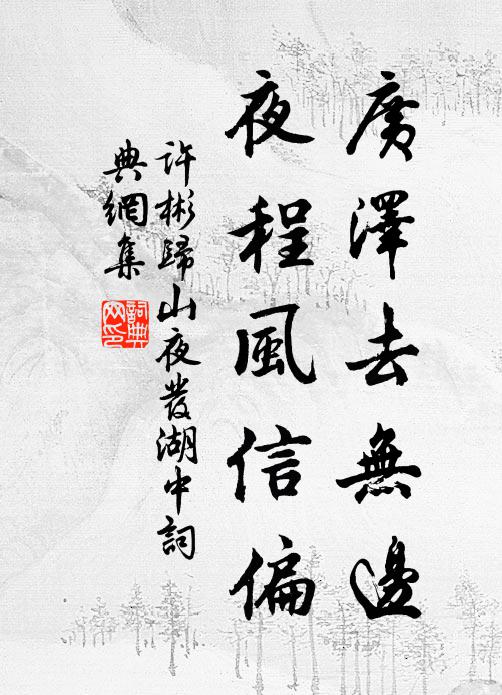 廣澤去無邊
夜程風信偏
許彬歸山夜發湖中詞
典網集
詞典
网印